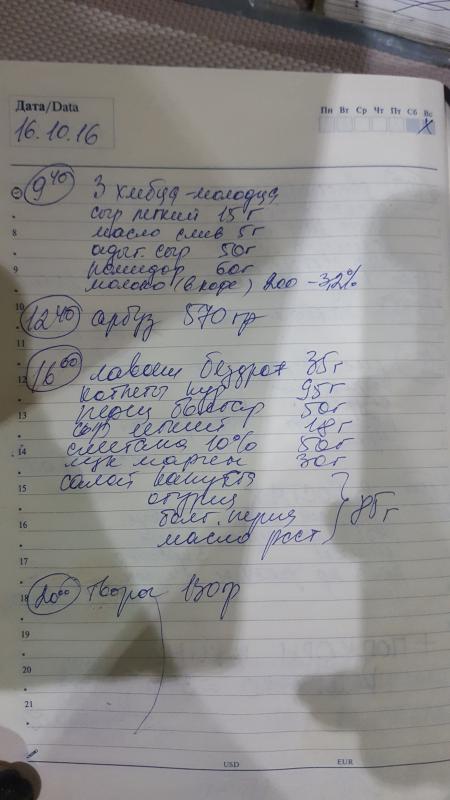 Дата/Data
Пн Вт Ср Чт Пт Сб Вс
16.10.16
9 40 3 хлебца-молодца
сыр легкий 15 г
8 масло слив 5 г
адыг. сыр 50г
9 помидор 60г
молоко (в кофе) 200 - 3,2%
10
12 40 арбуз 570 гр
11
16 00 лаваш бездрож 35г
12
котлеты кур 95г
13 перец болгар 50г
сыр легкий 18г
14 сметана 10% 50г
лук марин 30г
15 салат капуста
огурец
16 болг. перец 85 г
масло раст
17
20 00 творог 130гр
18
19
20
21
USD EUR